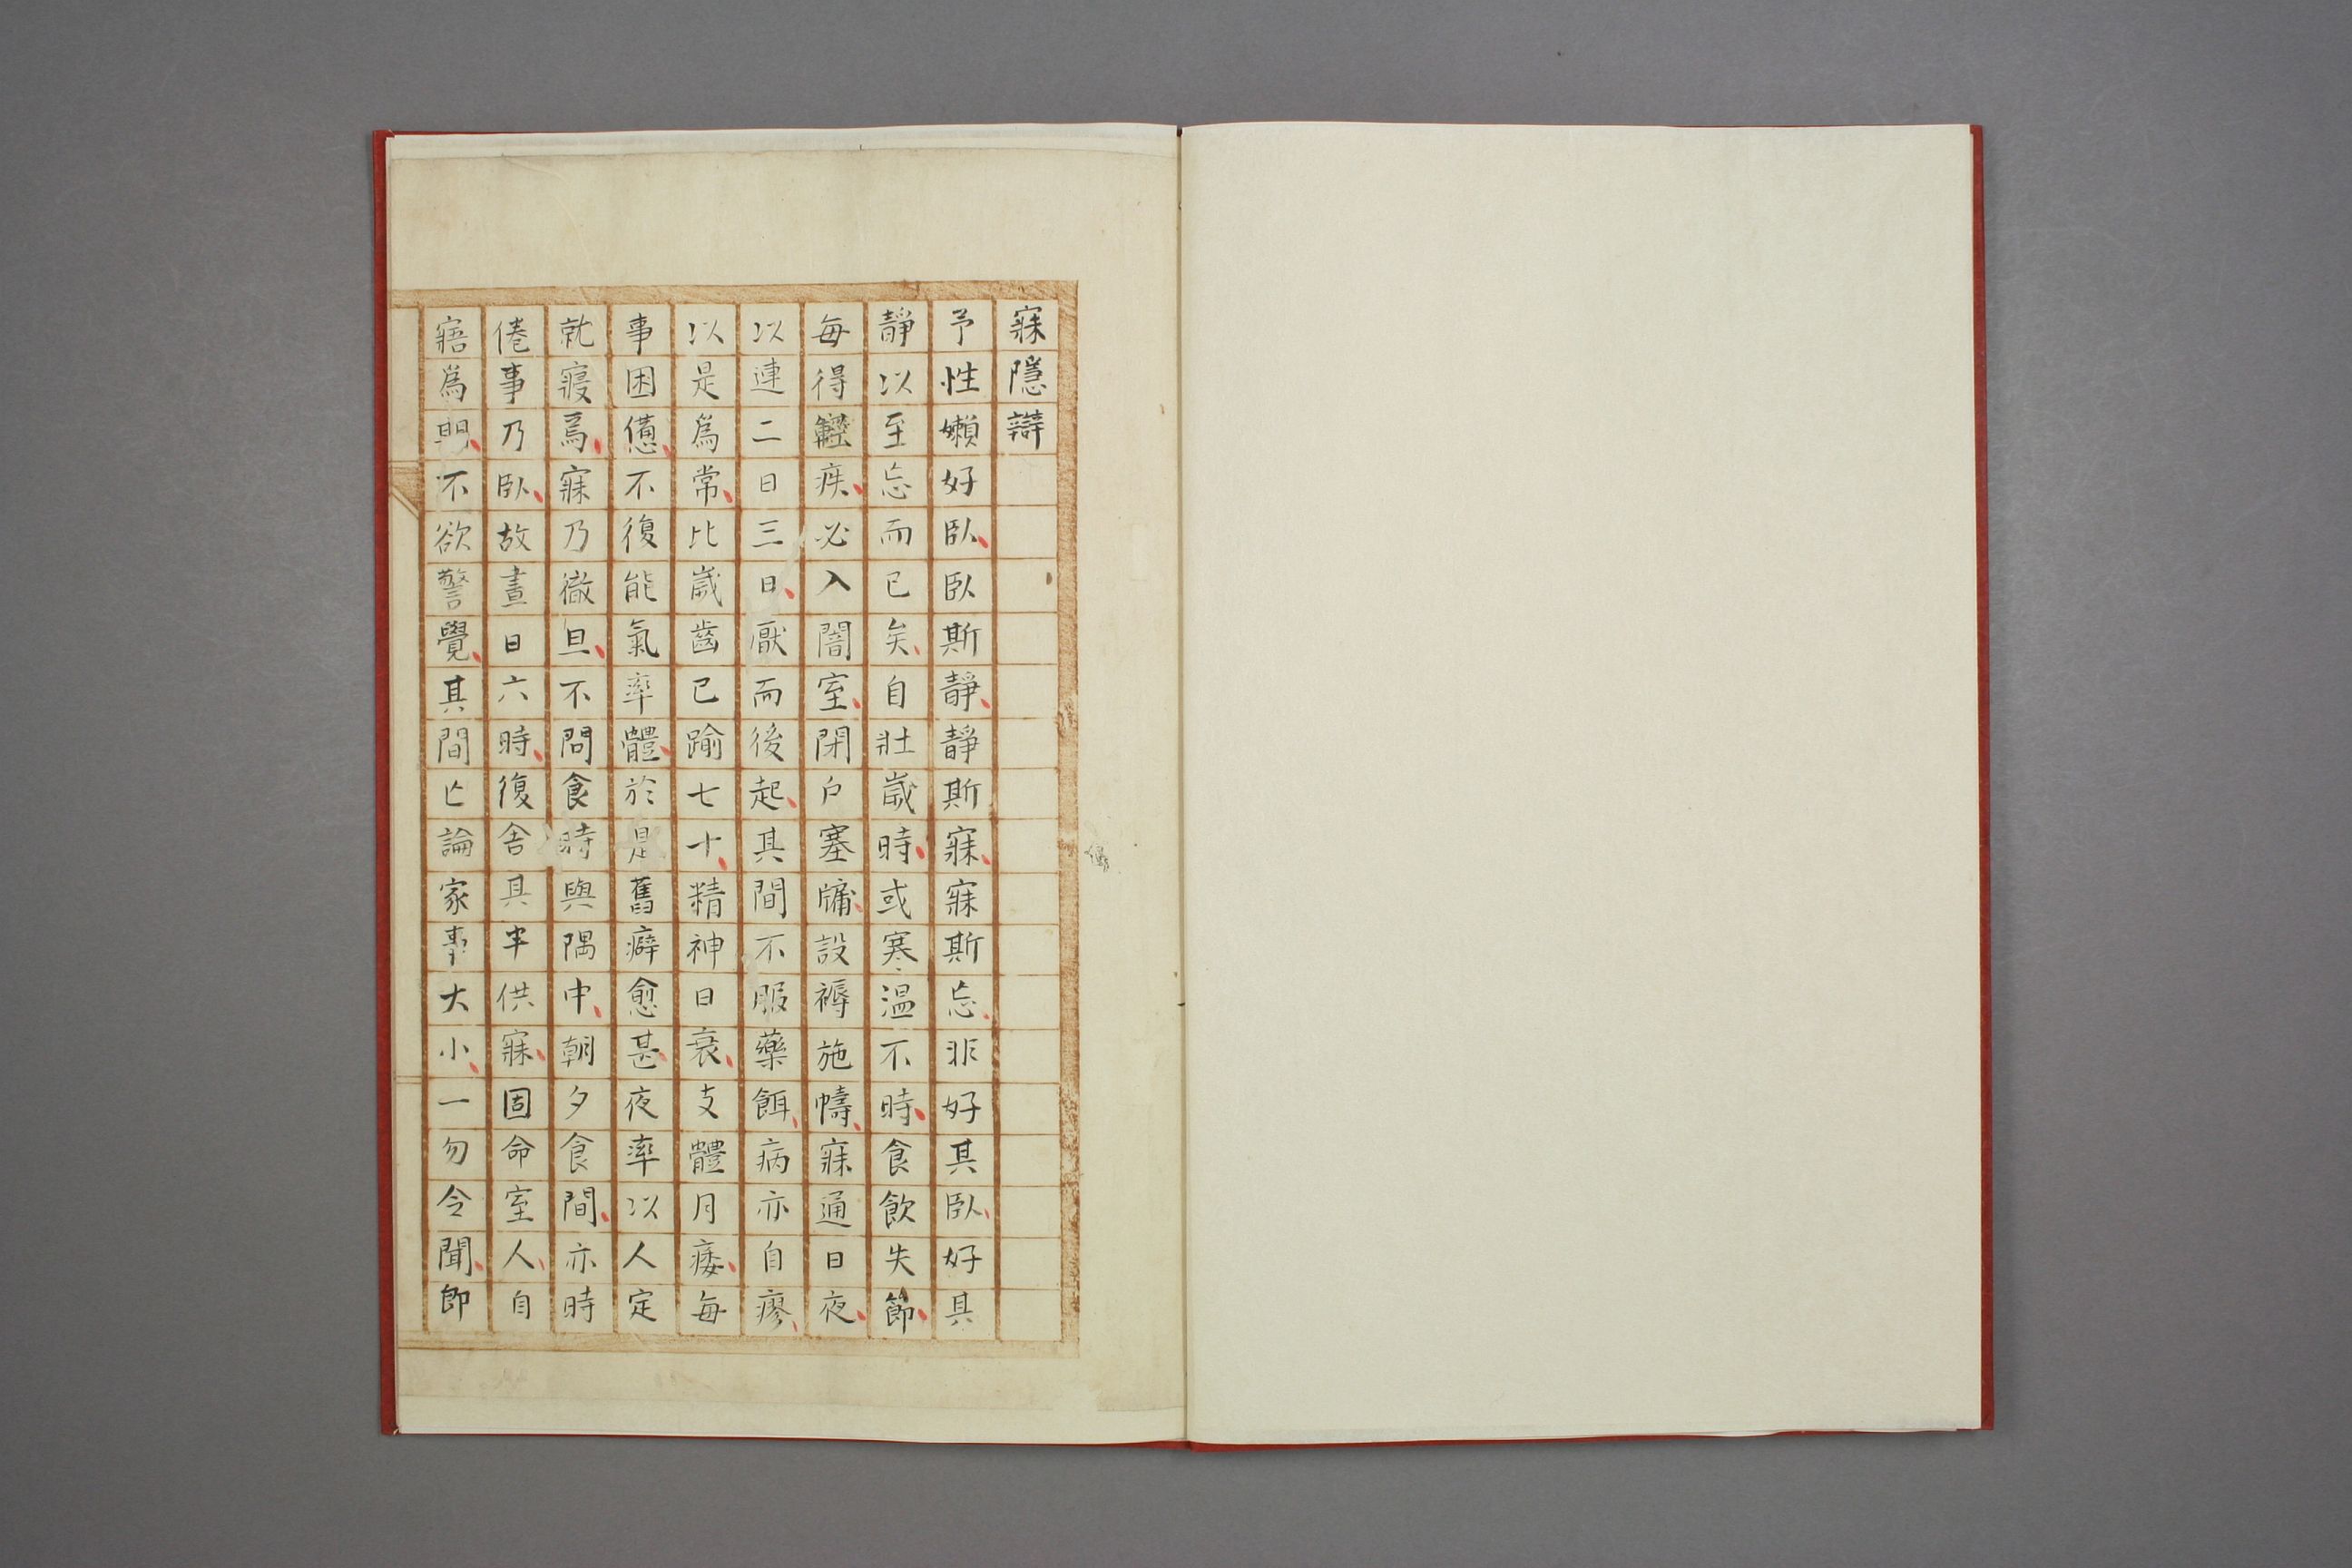 寐隱辯
予性嬾好臥、臥斯靜、靜斯寐、寐斯忘、非好其臥、好其
靜以至忘而已矣、自壯歲時、或寒温不時、食飲失節、
每得輕疾、必入闇室、閉戶塞牗、設褥施幬、寐通日夜、
以連二日三日、厭而後起、其間不服藥餌、病亦自瘳、
以是爲常、比歲齒已踰七十、精神日衰、支體月痿、每
事困僃、不復能氣率體、於是舊癖愈甚、夜率以人定
就寢焉、寐乃徹旦、不問食時與隅中、朝夕食間、亦時
倦事乃臥、故晝日六時、復舍其半供寐、固命室人、自
寤爲期、不欲警覺、其間亡論家事大小、一勿令聞、卽